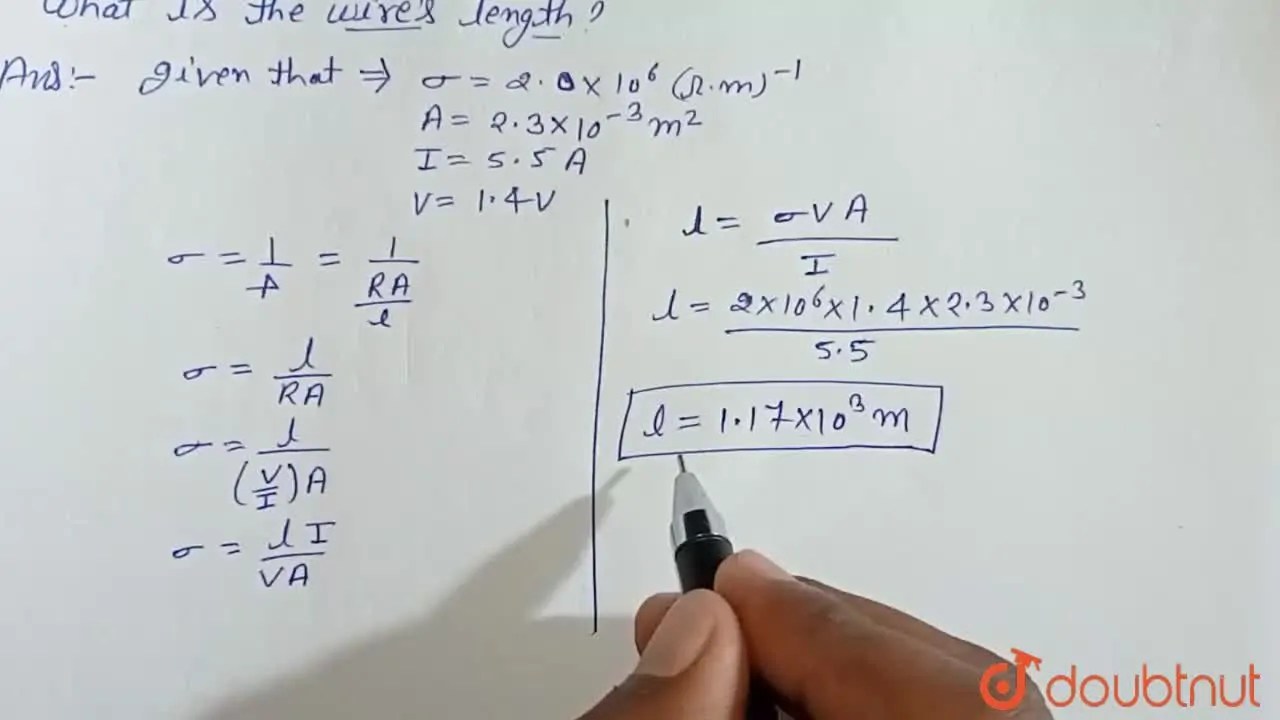 What is the wire's length?
Ans:- given that ⇒ σ = 2.0×10⁶ (Ω.m)⁻¹
A = 2.3×10⁻³ m²
I = 5.5 A
V = 1.4V
σ = 1/ρ = 1/(RA/l)
σ = l/RA
σ = l/((V/I)A)
σ = lI/VA
l = σVA/I
l = 2×10⁶×1.4×2.3×10⁻³/5.5
l = 1.17×10³ m
doubtnut